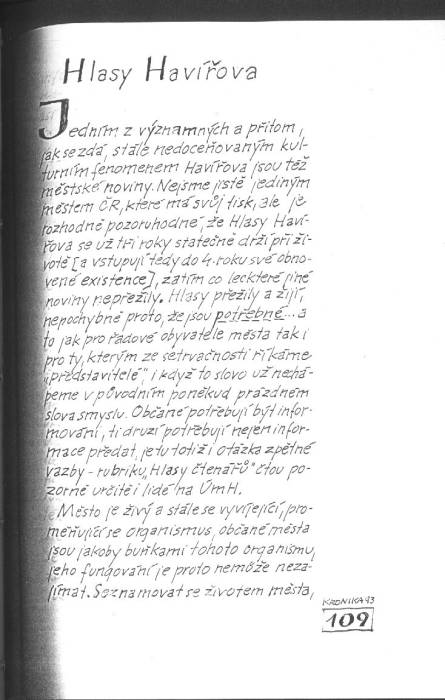 Hlasy Havířova
Jedním z významných a přitom,
jak se zdá, stále nedoceňovaným kul-
turním fenomenem Havířova jsou též
městské noviny. Nejsme jistě jediným
městem ČR, které má svůj tisk, ale je
rozhodně pozoruhodné, že Hlasy Haví-
řova se už tři roky statečně drží při ži-
votě [a vstupují tedy do 4. roku své obno-
vené existence], zatím co leckteré jiné
noviny nepřežily. Hlasy přežily a žijí,
nepochybně proto, že jsou potřebné... a
to jak pro řadové obyvatele města tak i
pro ty, kterým ze setrvačnosti říkáme
„představitelé", i když to slovo už nechá-
peme v původním poněkud prázdném
slova smyslu. Občané potřebují být infor-
mováni, ti druzí potřebují nejen infor-
mace předat, je tu totiž i otázka zpětné
vazby - rubriku „Hlasy čtenářů" čtou po-
zorně určitě i lidé na ÚmH.
Město je živý a stále se vyvíjející, pro-
měňující se organismus, občané města
jsou jakoby buňkami tohoto organismu,
jeho fungování je proto nemůže neza-
jímat. Seznamovat se životem města,
KRONIKA 93
109